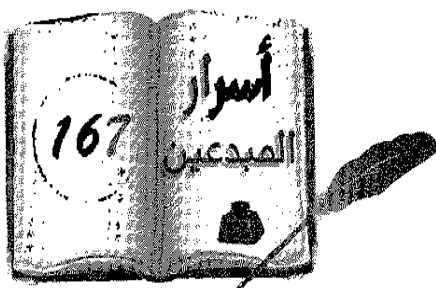 أسرار
المبدعين
167